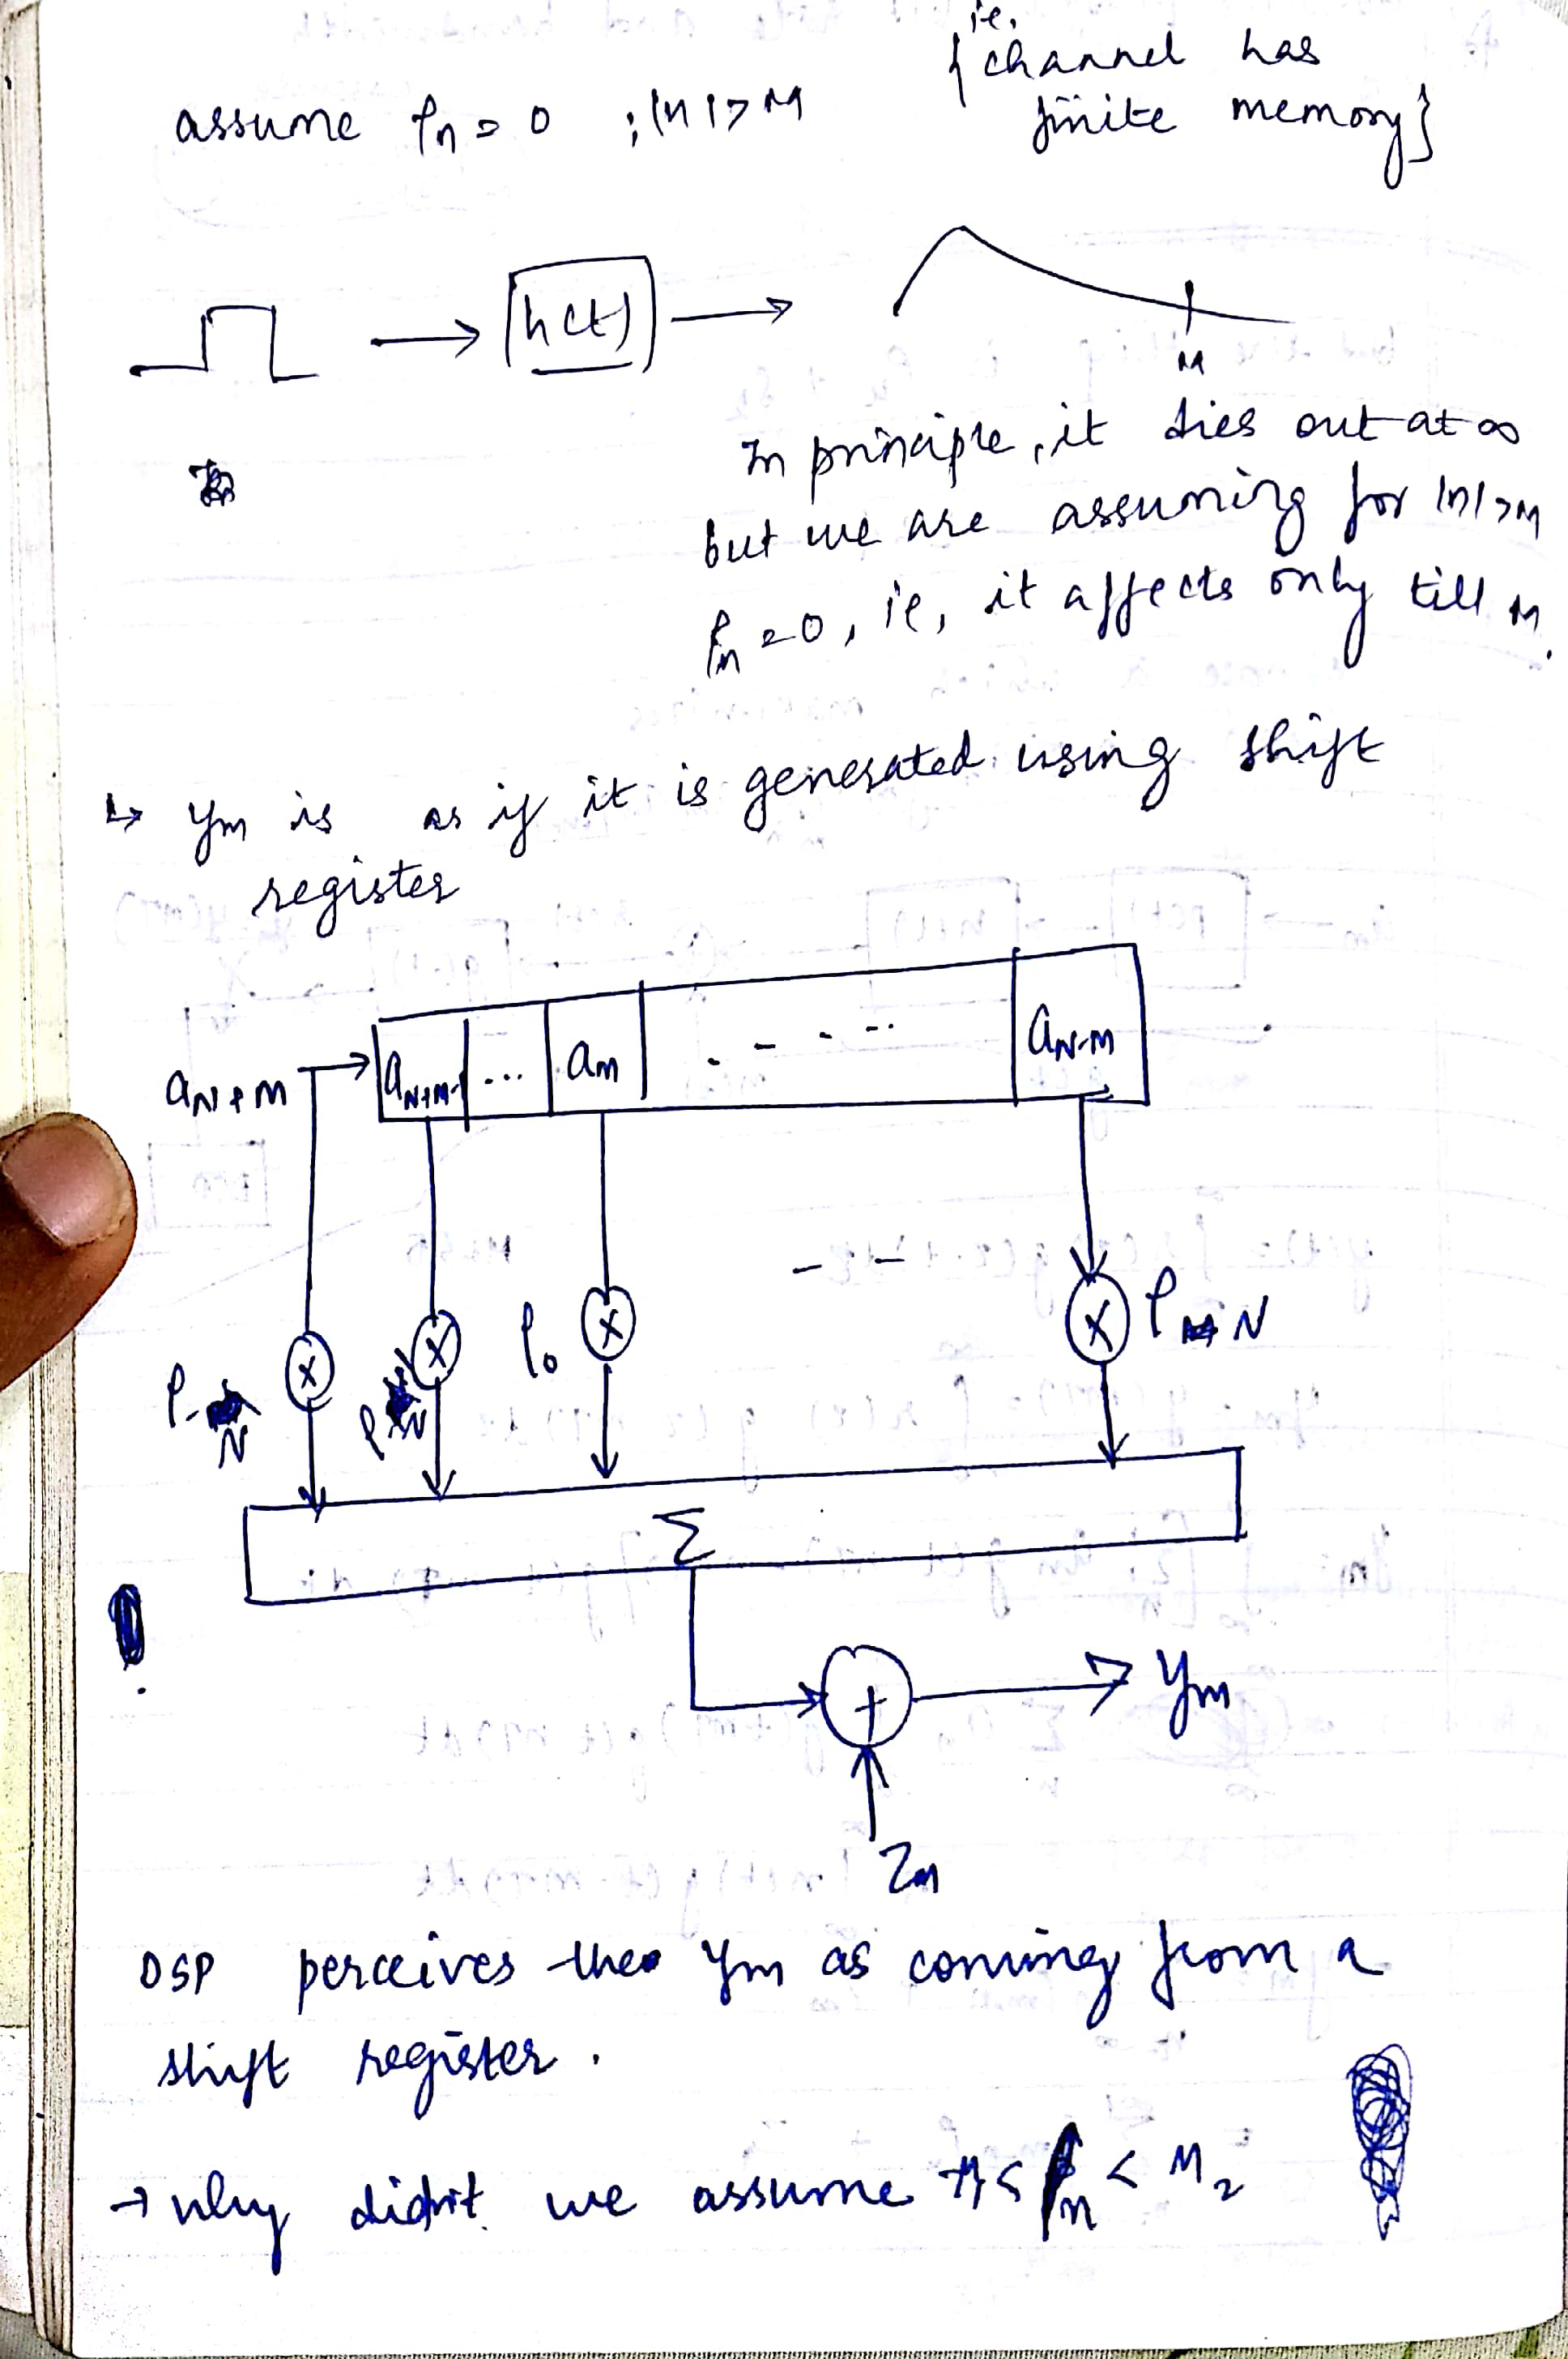 ie,
{channel has
assume ρn = 0 ; |n| > M finite memory}
h(t)
M
In principle, it dies out at ∞
but we are assuming for |n|>M
ρn = 0, ie, it affects only till M.
↳ ym is as if it is generated using shift
register
aN+m aN+m-1 ... am - - - - aN-m
- - -
ρ-N ρ0 ρN
Σ
+ ym
Zm
DSP perceives the ym as coming from a
shift register.
→ why didn't we assume < ρn < M2